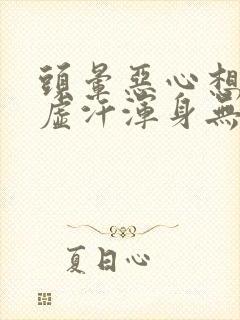 頭暈惡心想
虛汗渾身無
夏日心